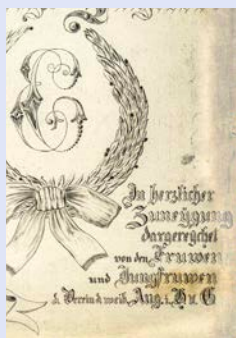 E
In herzlicher
Zuneygung
dargereychet
von den Fruwen
und Jungfruwen
d. Verein d. weib. Ang. i. Hu. G